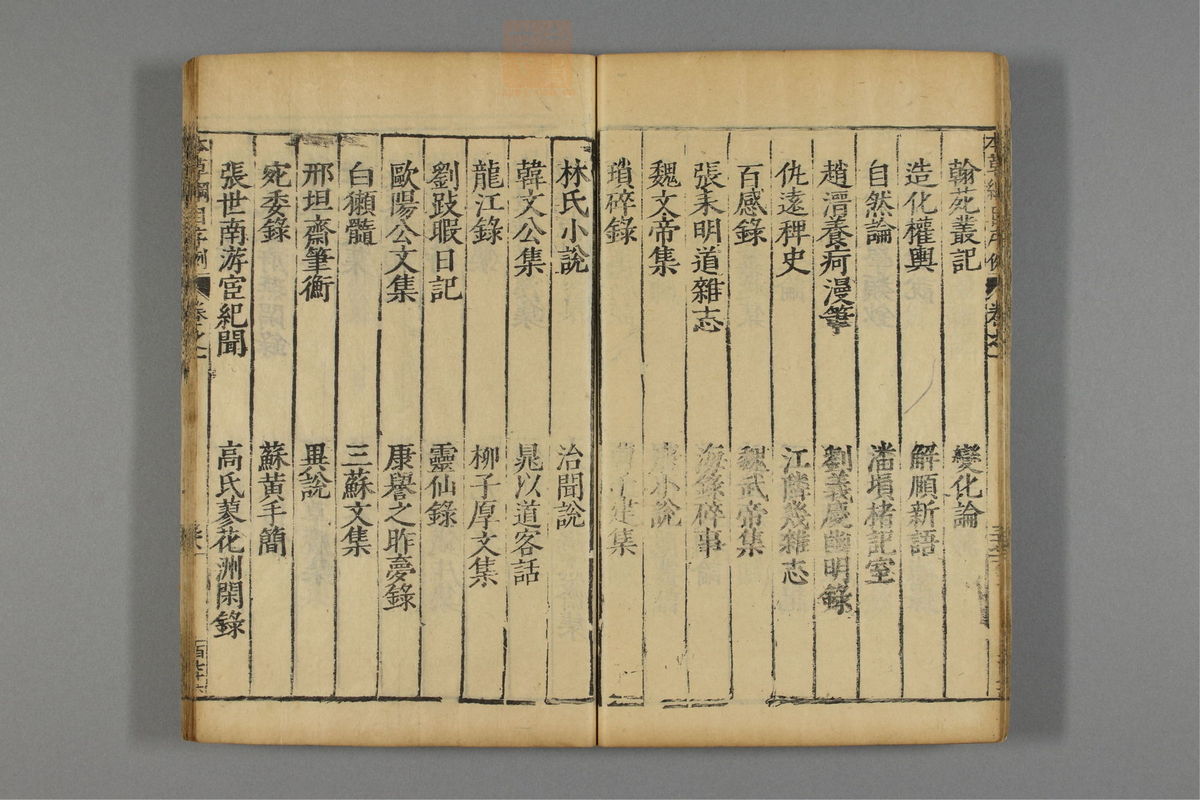 翰苑叢記　變化論
造化權輿　解頤新語
自然論　潘塤楮記室
趙溍養疴漫筆　劉義慶幽明錄
仇遠稗史　江隣幾雜志
百感錄　魏武帝集
張耒明道雜志　海錄碎事
魏文帝集　小說
瑣碎錄　建集
林氏小說　治聞說
韓文公集　晁以道客話
龍江錄　柳子厚文集
劉跂暇日記　靈仙錄
歐陽公文集　康譽之昨夢錄
白獺髓　三蘇文集
邢坦齋筆衡　異說
宛委錄　蘇黃手簡
張世南游宦紀聞　高氏蓼花洲閑錄
本草綱目序例　卷之一